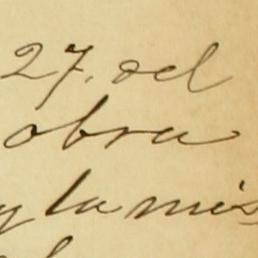 27. del
obra
y la mis